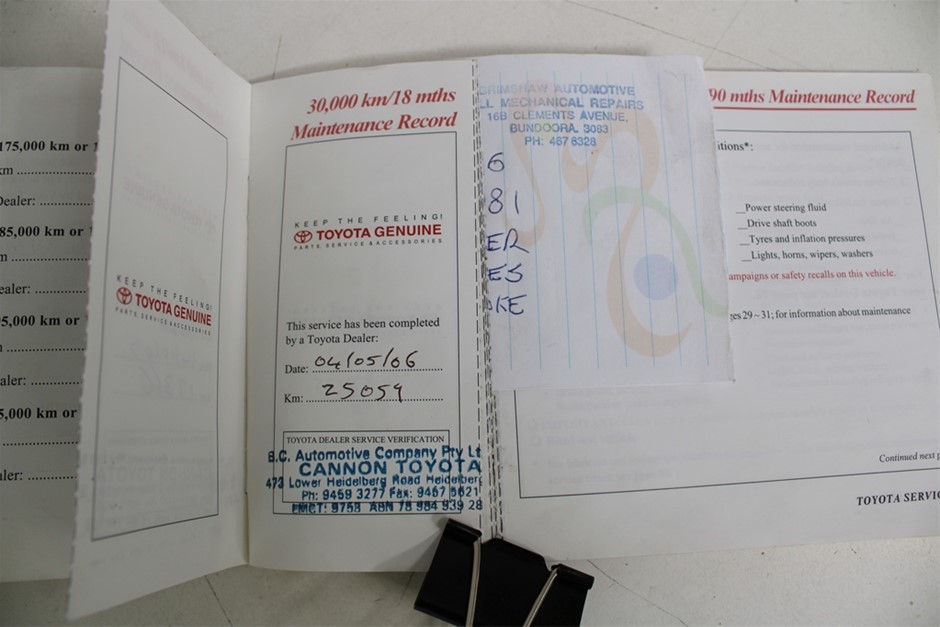 175,000 km or 1
km
Dealer:
85,000 km or
m
ealer:
5,000 km or
aler:
5,000 km or
ler:
KEEP THE FEELING!
TOYOTA GENUINE
PARTS, SERVICE & ACCESSORIES
30,000 km/18 mths
Maintenance Record
KEEP THE FEELING!
TOYOTA GENUINE
PARTS, SERVICE & ACCESSORIES
This service has been completed
by a Toyota Dealer:
Date: 04/05/06
Km: 25059
TOYOTA DEALER SERVICE VERIFICATION
B.C. Automotive Company Pty Lt
CANNON TOYOTA
473 Lower Heidelberg Road Heidelber
Ph: 9459 3277 Fax: 9457 5621
LMCT: 9753 ABN 78 984 939 28
GRIMSHAW AUTOMOTIVE
LL MECHANICAL REPAIRS
16B CLEMENTS AVENUE,
BUNDOORA. 3083
PH: 467 6328
6
81
ER
ES
KE
90 mths Maintenance Record
itions*:
_Power steering fluid
_Drive shaft boots
_Tyres and inflation pressures
_Lights, horns, wipers, washers
ampaigns or safety recalls on this vehicle.
ges 29 ~ 31; for information about maintenance
Continued next p
TOYOTA SERVIC